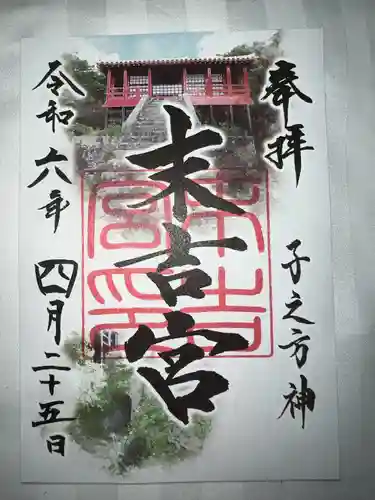 奉拝
子之方神
末吉宮
令和六年四月二十五日